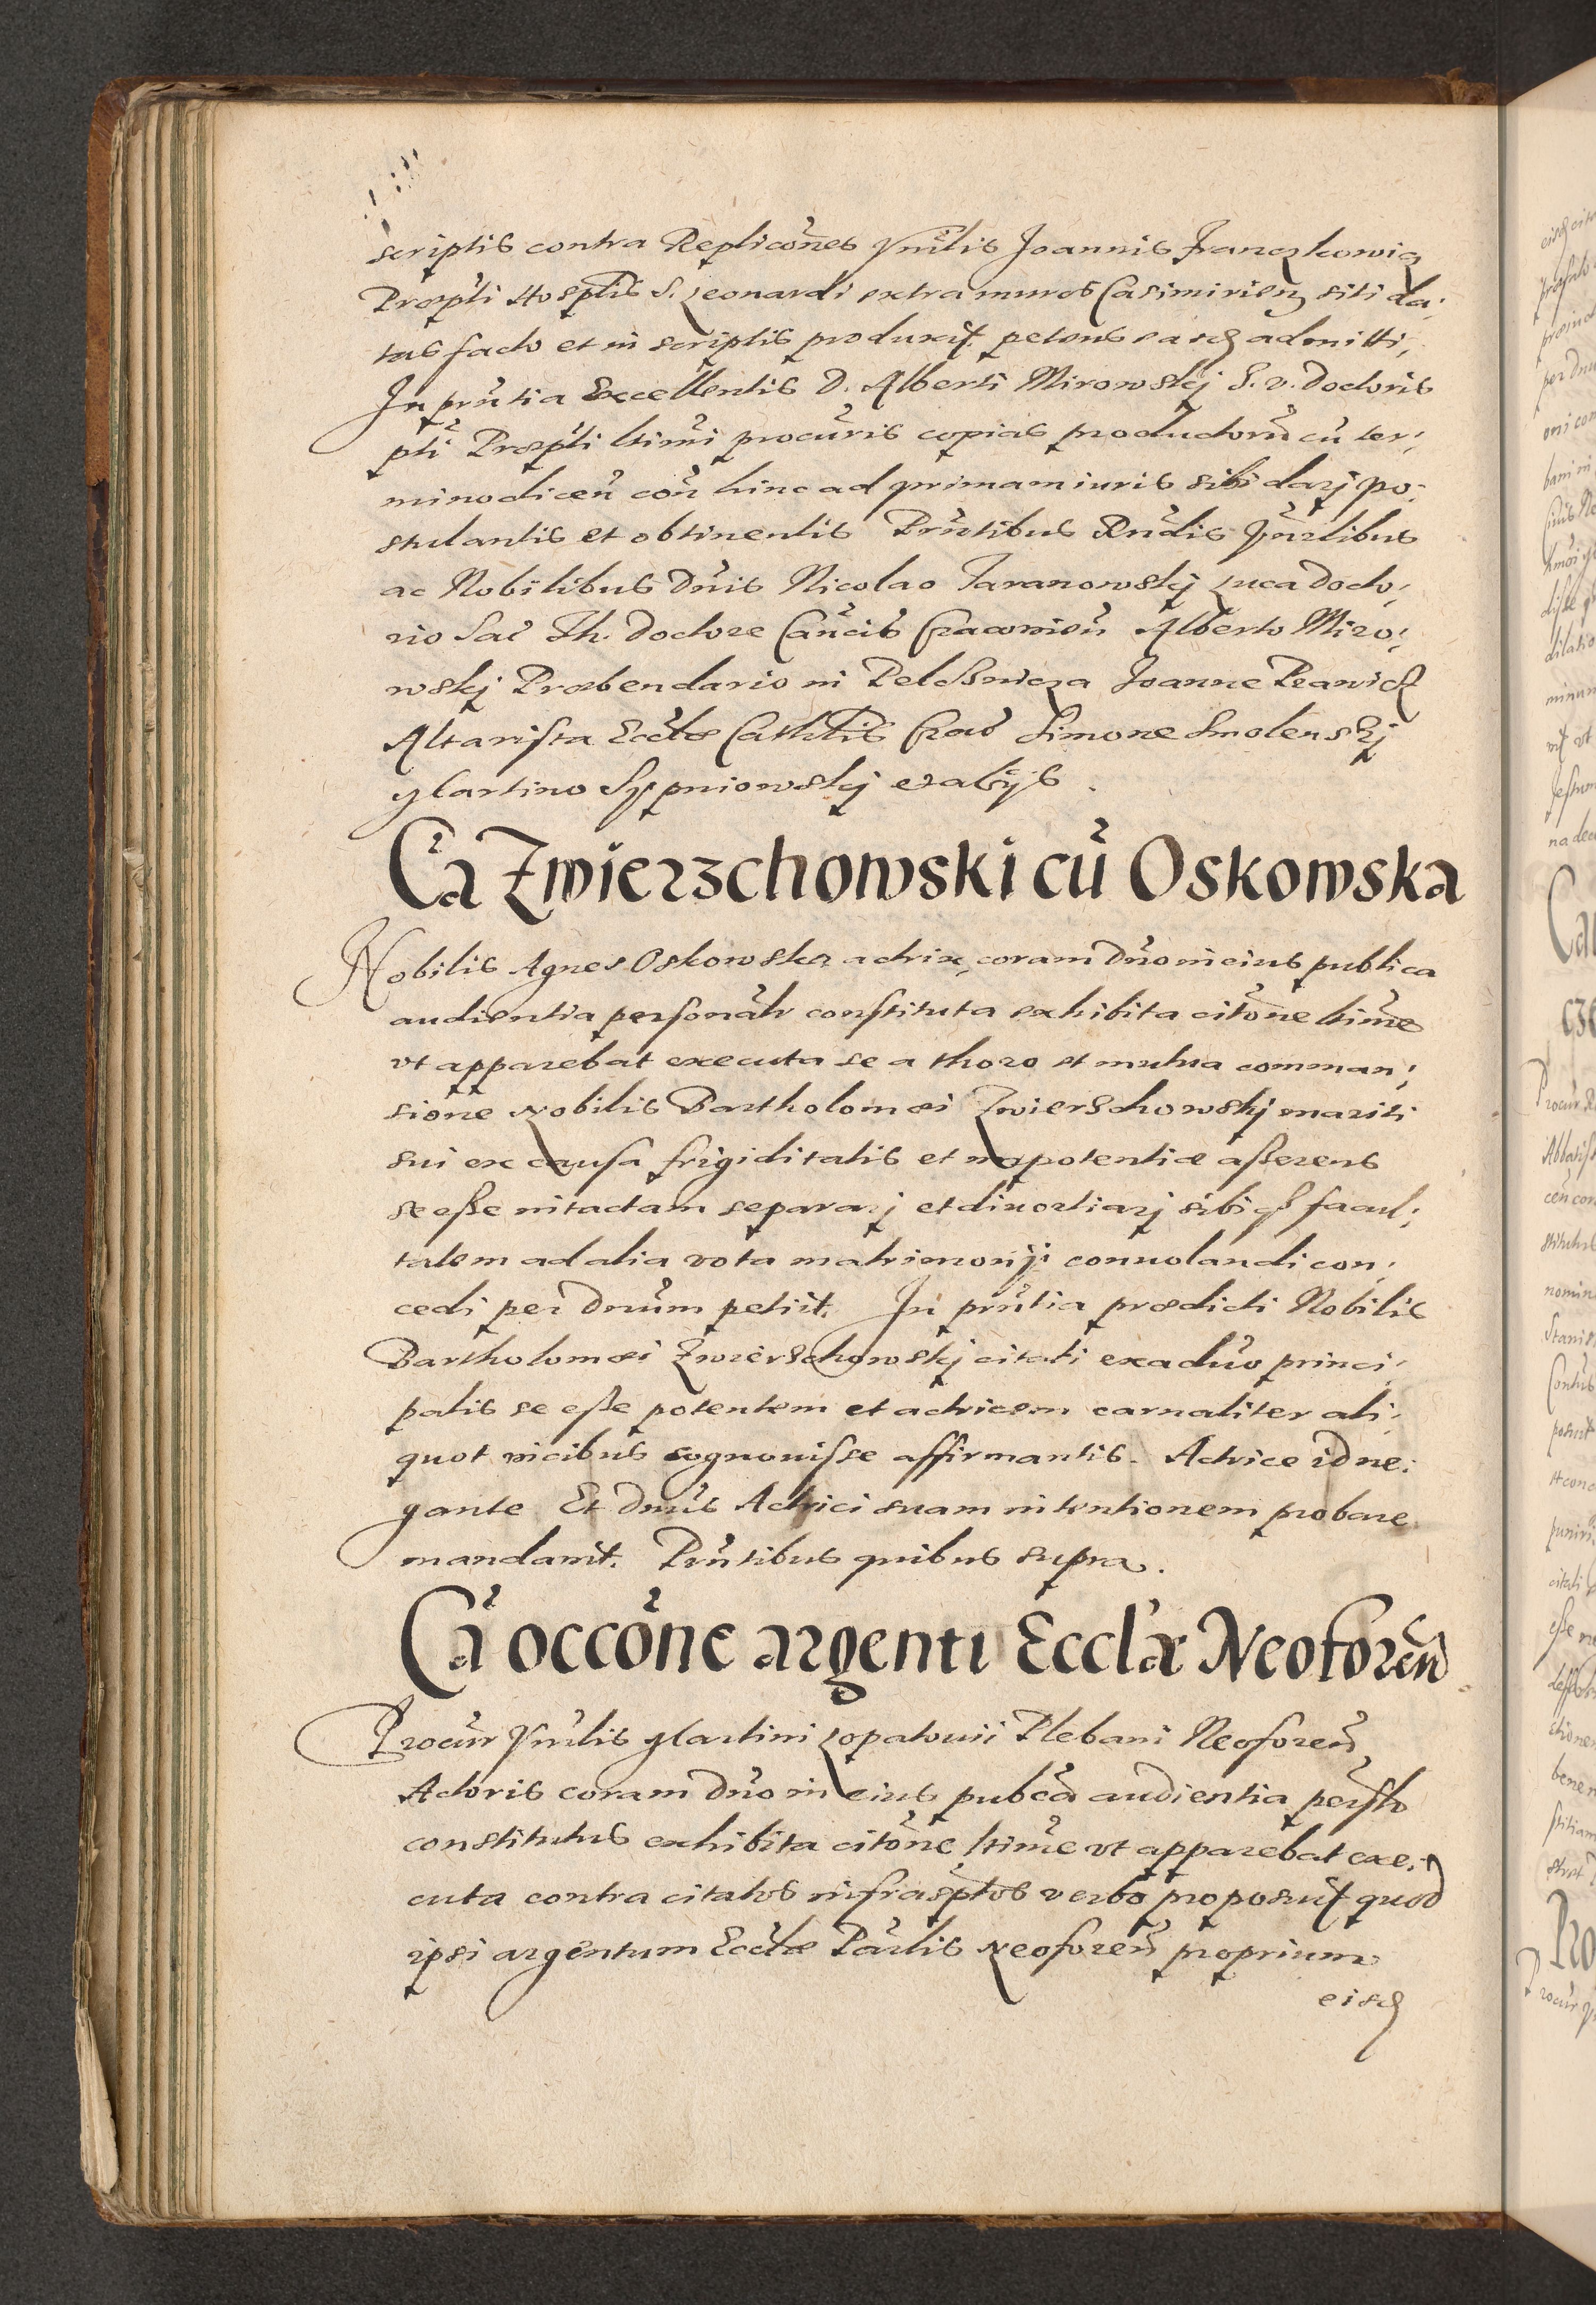 scriptis contra Replicões Vnŕlis Joannis Franczkowicz
Præpti Hosptlis S. Leonardi extra muros Casimirien siti da:
tas facto et in scriptis produxit petens easd admitti,
In pñtia Excellentis D. Alberti Mirowskj S. v. Doctoris
pti Præpti ltimi procuris copias productorũ cũ ter:
mino diceñ coñ hinc ad primam iuris sibi darj po:
stulantis et obtinentis Pñtibus Rñdis Vñrlibus
ac Nobilibus Dnis Nicolao Taranowskj Luca Docto:
rio Sac Th. Doctore Cañcis Cracovieñ Alberto Miro:
wskj Præbendario in Pelcznicza Joanne
Altarista Eccłæ Cathłis Crac Simone Smolenskj
Martino Sypniowskj et alijs.
Cã Zwierzchowski cũ Oskowska
Nobilis Agnes Oskowska actrix, coram Dño in eius publica
audientia personalr constituta exhibita citõne ltime
vt apparebat executa se a thoro et mutua comman:
sione Nobilis Bartholomæi Zwierschowskj mariti
sui ex causa frigiditatis et impotentiæ asserens
se esse intactam separarj et diuortiarj sibiq facul:
tatem ad alia vota matrimonij conuolandi con:
cedi per Dnum petiit. In pñtia prædicti Nobilis
Bartholomæi Zwierschowskj citati ex aduo princi:
palis se esse potentem et actricem carnaliter ali:
quot vicibus cognouisse affirmantis. Actrice id ne:
gante Et Dnus Actrici suam intentionem probare
mandauit. Pñtibus quibus supra.
Cã occõne argenti Eccłæ Neoforeñ
Procur Vñrlis Martini Lopatouii Plebani Neoforeñ
Actoris coram Dño in eius pubca audientia persl
constitutus exhibita citõne ltime vt apparebat exe:
cuta contra citatos infrasptos verbo proposuit quod
ipsi argentum Eccłæ Parlis Neoforeñ proprium
eisd